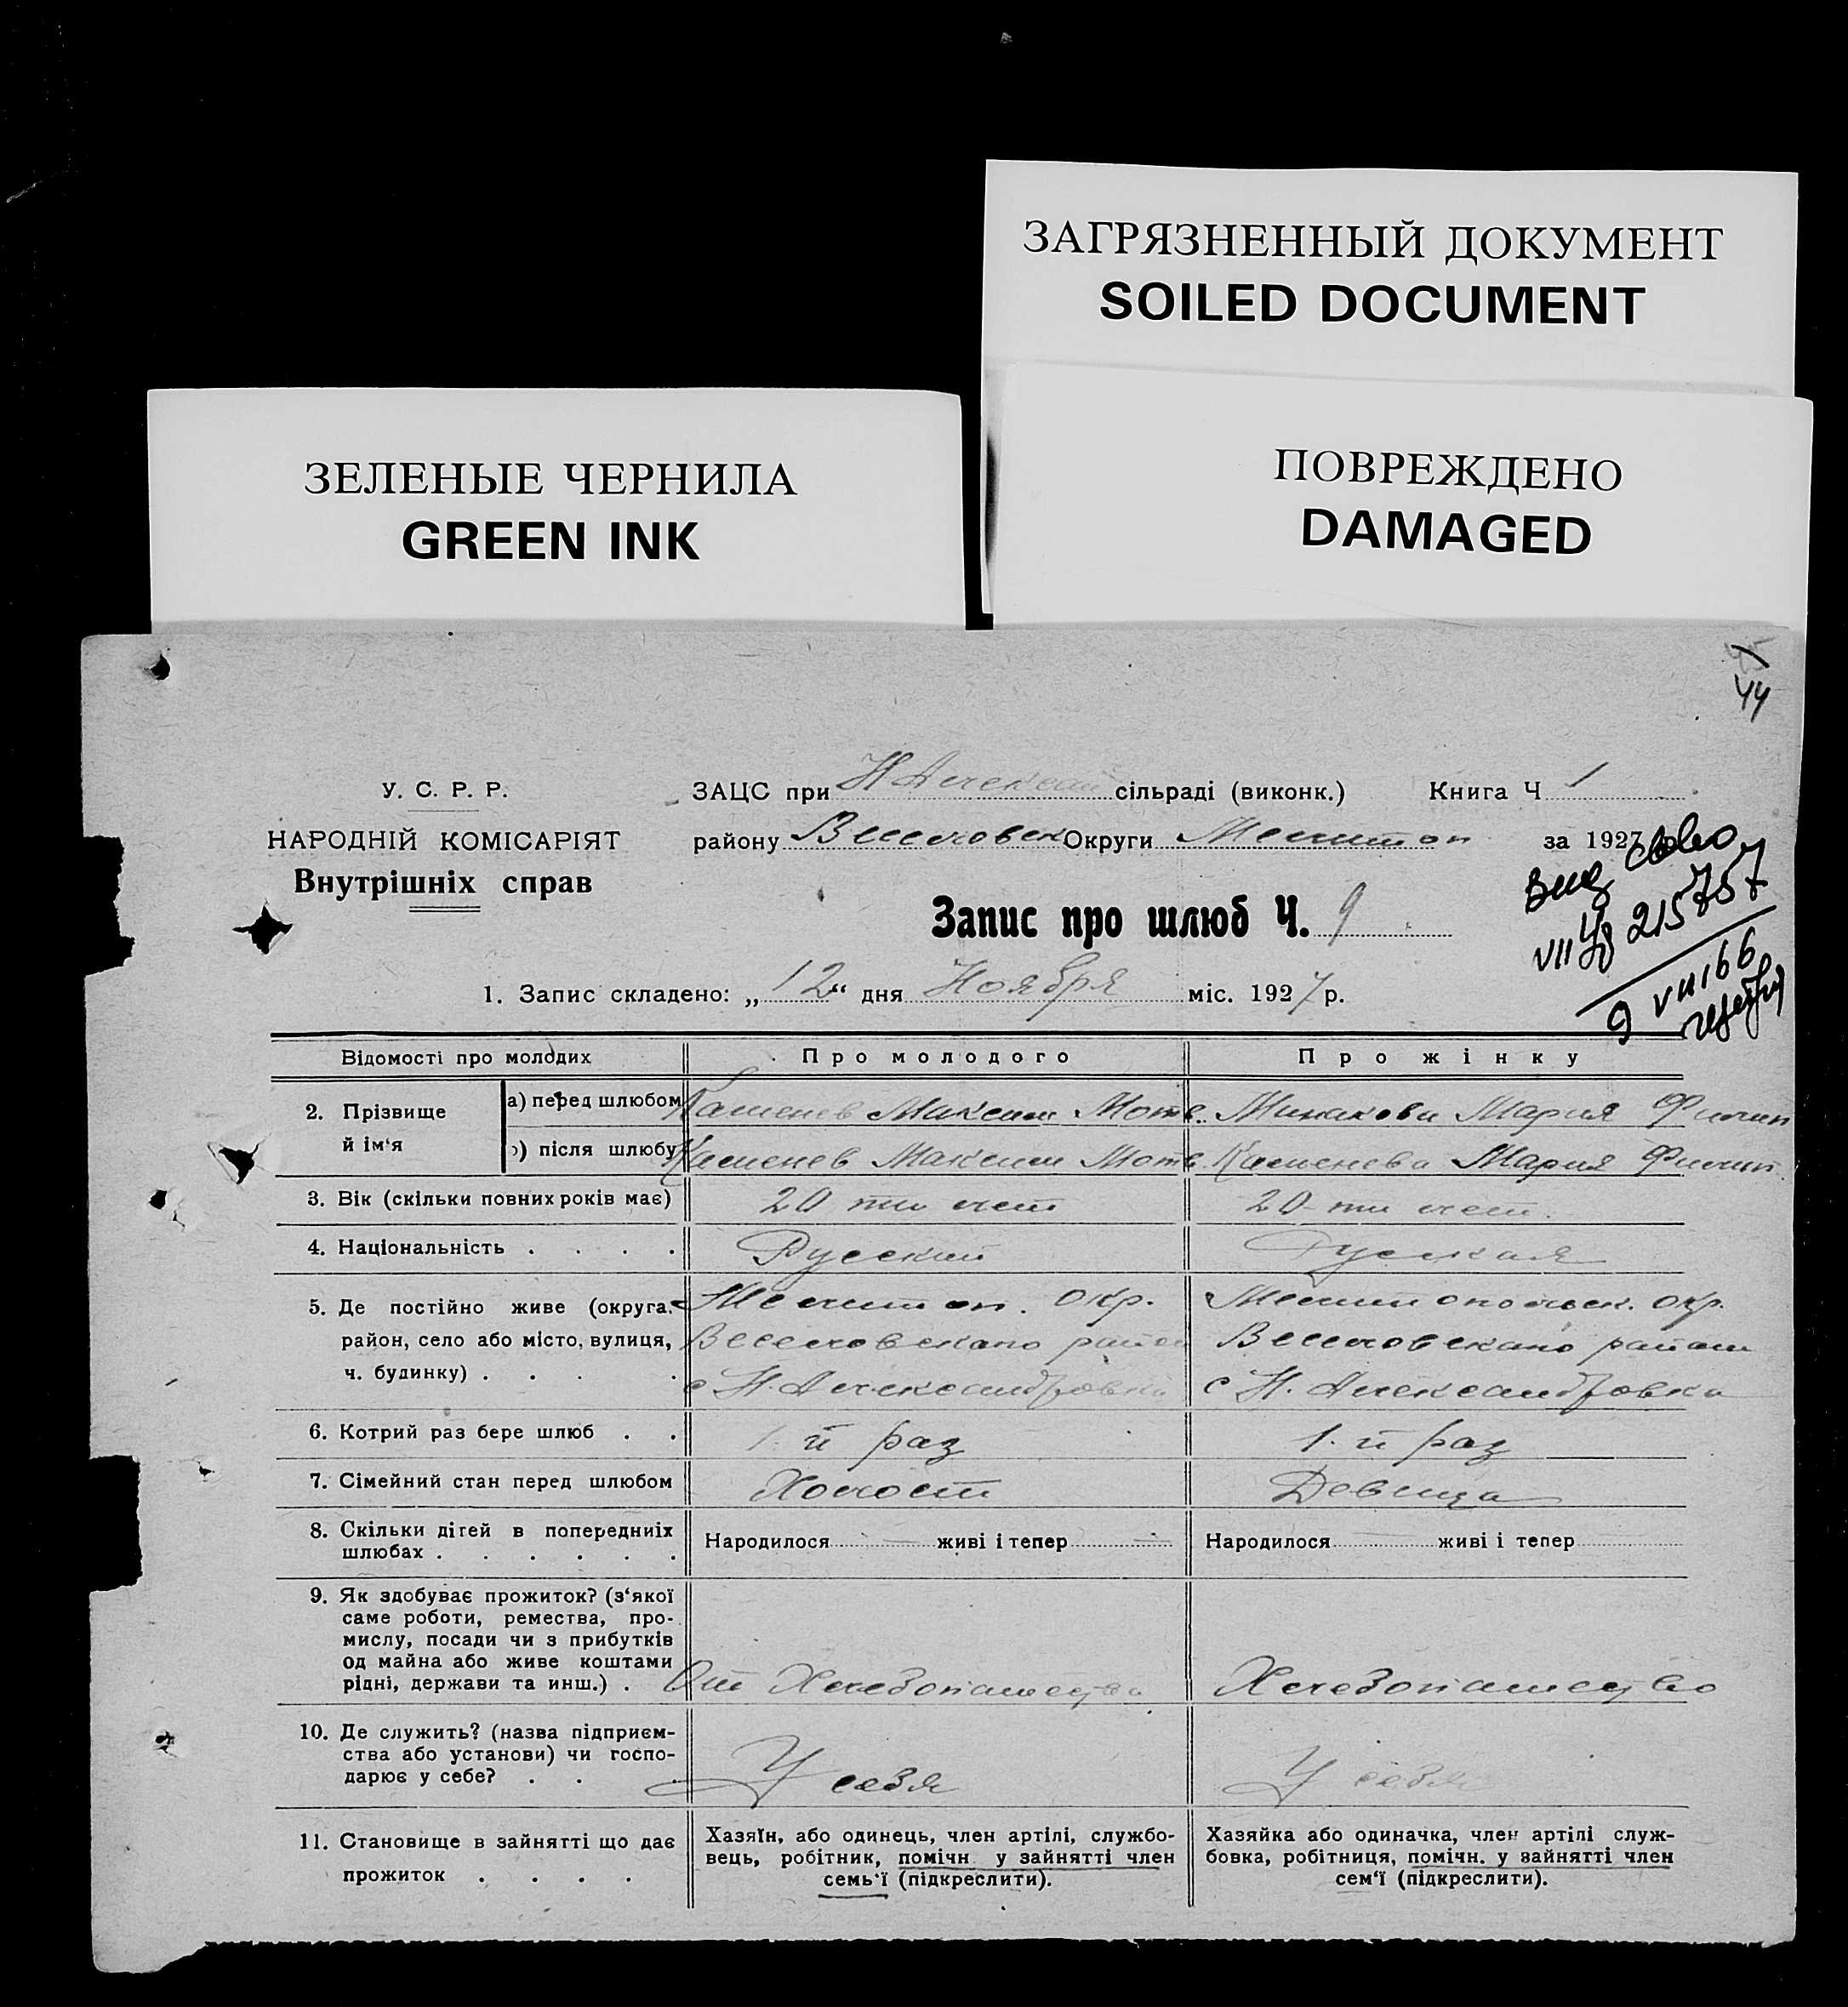 ЗАГРЯЗНЕННЫЙ ДОКУМЕНТ
SOILED DOCUMENT
ЗЕЛЕНЫЕ ЧЕРНИЛА
GREEN INK
ПОВРЕЖДЕНО
DAMAGED
44
У. С. Р. Р.
НАРОДНІЙ КОМІСАРІЯТ
Внутрішніх справ
ЗАЦС при Н Алексан сільраді (виконк.) Книга Ч 1
району Веселовск Округи Мелитоп за 1927
Выд 215757
9 VII 66
Запис про шлюб Ч. 9
1. Запис складено: „12“ дня Ноября міс. 1927 р.
Відомості про молодих Про молодого Про жінку
2. Прізвище й ім‘я
а) перед шлюбом Каменев Максим Мотв. Минакова Мария Филип
) після шлюбу Каменев Максим Мотв. Каменева Мария Филип
3. Вік (скільки повних років має) 20 ти лет 20-ти лет.
4. Національність . . . . Русский Руская
5. Де постійно живе (округа, Мелитоп. окр. Мелитопольск. окр.
район, село або місто, вулиця, Веселовскаго район Веселовскаго района
ч. будинку) . . . . с Н. Александровка с Н. Александровка
6. Котрий раз бере шлюб . . 1-й раз 1-й раз
7. Сімейний стан перед шлюбом Холост Девица
8. Скільки дітей в попередніх Народилося — живі і тепер — Народилося живі і тепер
шлюбах . . . . . .
9. Як здобуває прожиток? (з‘якої
саме роботи, ремества, про-
мислу, посади чи з прибутків
од майна або живе коштами
рідні, держави та инш.) . От Хлебопашества Хлебопашество
10. Де служить? (назва підприєм-
ства або установи) чи госпо-
дарює у себе? . . У себя У себя
11. Становище в зайнятті що дає
прожиток . . . .
Хазяїн, або одинець, член артілі, службо-
вець, робітник, помічн у зайнятті член
семь‘ї (підкреслити).
Хазяйка або одиначка, член артілі служ-
бовка, робітниця, помічн. у зайнятті член
сем‘ї (підкреслити).